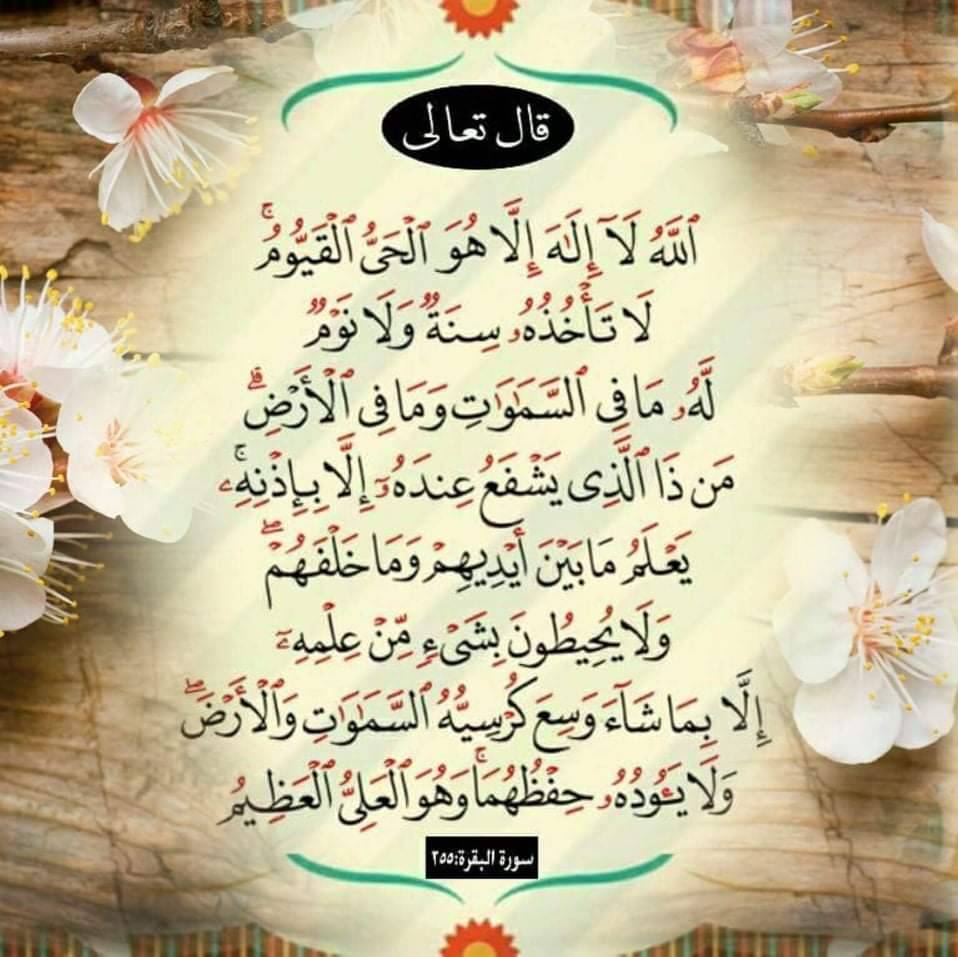 قال تعالى
ٱللَّهُ لَآ إِلَٰهَ إِلَّا هُوَ ٱلْحَىُّ ٱلْقَيُّومُ ۚ
لَا تَأْخُذُهُۥ سِنَةٌ وَلَا نَوْمٌ
لَّهُۥ مَا فِى ٱلسَّمَٰوَٰتِ وَمَا فِى ٱلْأَرْضِ ۗ
مَن ذَا ٱلَّذِى يَشْفَعُ عِندَهُۥٓ إِلَّا بِإِذْنِهِۦ ۚ
يَعْلَمُ مَا بَيْنَ أَيْدِيهِمْ وَمَا خَلْفَهُمْ ۖ
وَلَا يُحِيطُونَ بِشَىْءٍ مِّنْ عِلْمِهِۦٓ
إِلَّا بِمَا شَآءَ وَسِعَ كُرْسِيُّهُ ٱلسَّمَٰوَٰتِ وَٱلْأَرْضَ ۖ
وَلَا يَـُٔودُهُۥ حِفْظُهُمَا ۚ وَهُوَ ٱلْعَلِىُّ ٱلْعَظِيمُ
سورة البقرة:٢٥٥